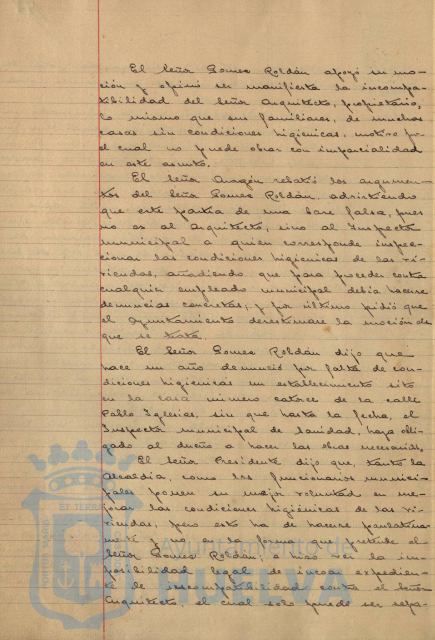 El Señor Gomez Roldán apoyó su mo-
ción y opinó ser manifiesta la incompa-
tibilidad del Señor Arquitecto, propietario,
lo mismo que sus familiares, de muchas
casas sin condiciones higienicas, motivo por
el cual no puede obrar con imparcialidad
en este asunto.
El Señor Aragón rebatió los argumen-
tos del Señor Gomez Roldán, advirtiendo
que este partia de una base falsa, pues
no es al Arquitecto, sino al Inspector
municipal a quien corresponde inspec-
cionar las condiciones higienicas de las vi-
viendas, añadiendo que para proceder contra
cualquier empleado municipal debia hacerse
denuncias concretas; y por último pidió que
el Ayuntamiento desestimase la moción de
que se trata.
El Señor Gomez Roldán dijo que
hace un año denunció por falta de con-
diciones higienicas un establecimiento sito
en la casa número catorce de la calle
Pablo Iglesias, sin que hasta la fecha, el
Inspector municipal de Sanidad, haya obli-
gado al dueño a hacer las obras necesarias.
El Señor Presidente dijo que, tanto la
Alcaldia, como los funcionarios munici-
pales ponen su mejor voluntad en me-
jorar las condiciones higiénicas de las vi-
viendas, pero esto ha de hacerse paulatina-
mente y no en la forma que pretende el
Señor Gomez Roldán; a más de la im-
posibilidad legal de incoar expedien-
te de incompatibilidad contra el Señor
Arquitecto, el cual solo puede ser sepa-
Ayuntamiento de
HUELVA